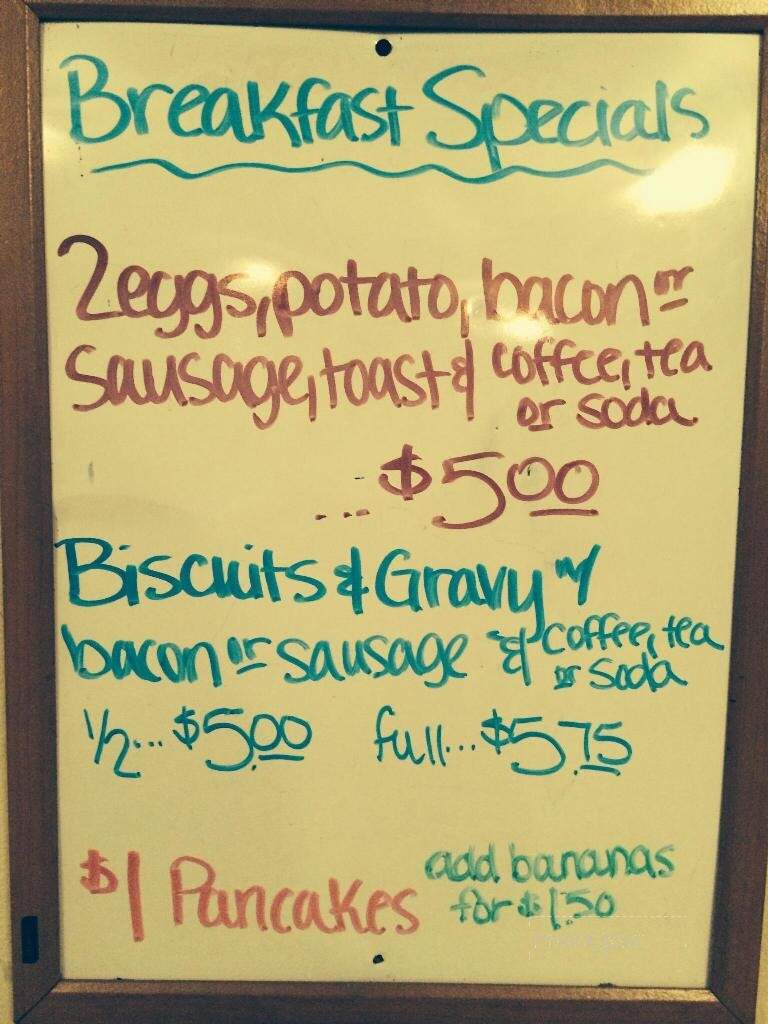 Breakfast Specials
2 eggs, potato, bacon or
sausage, toast & coffee, tea
or soda
... $5.00
Biscuits & Gravy w/
bacon or sausage & coffee, tea
or soda
1/2... $5.00 full... $5.75
$1 Pancakes add bananas
for $1.50